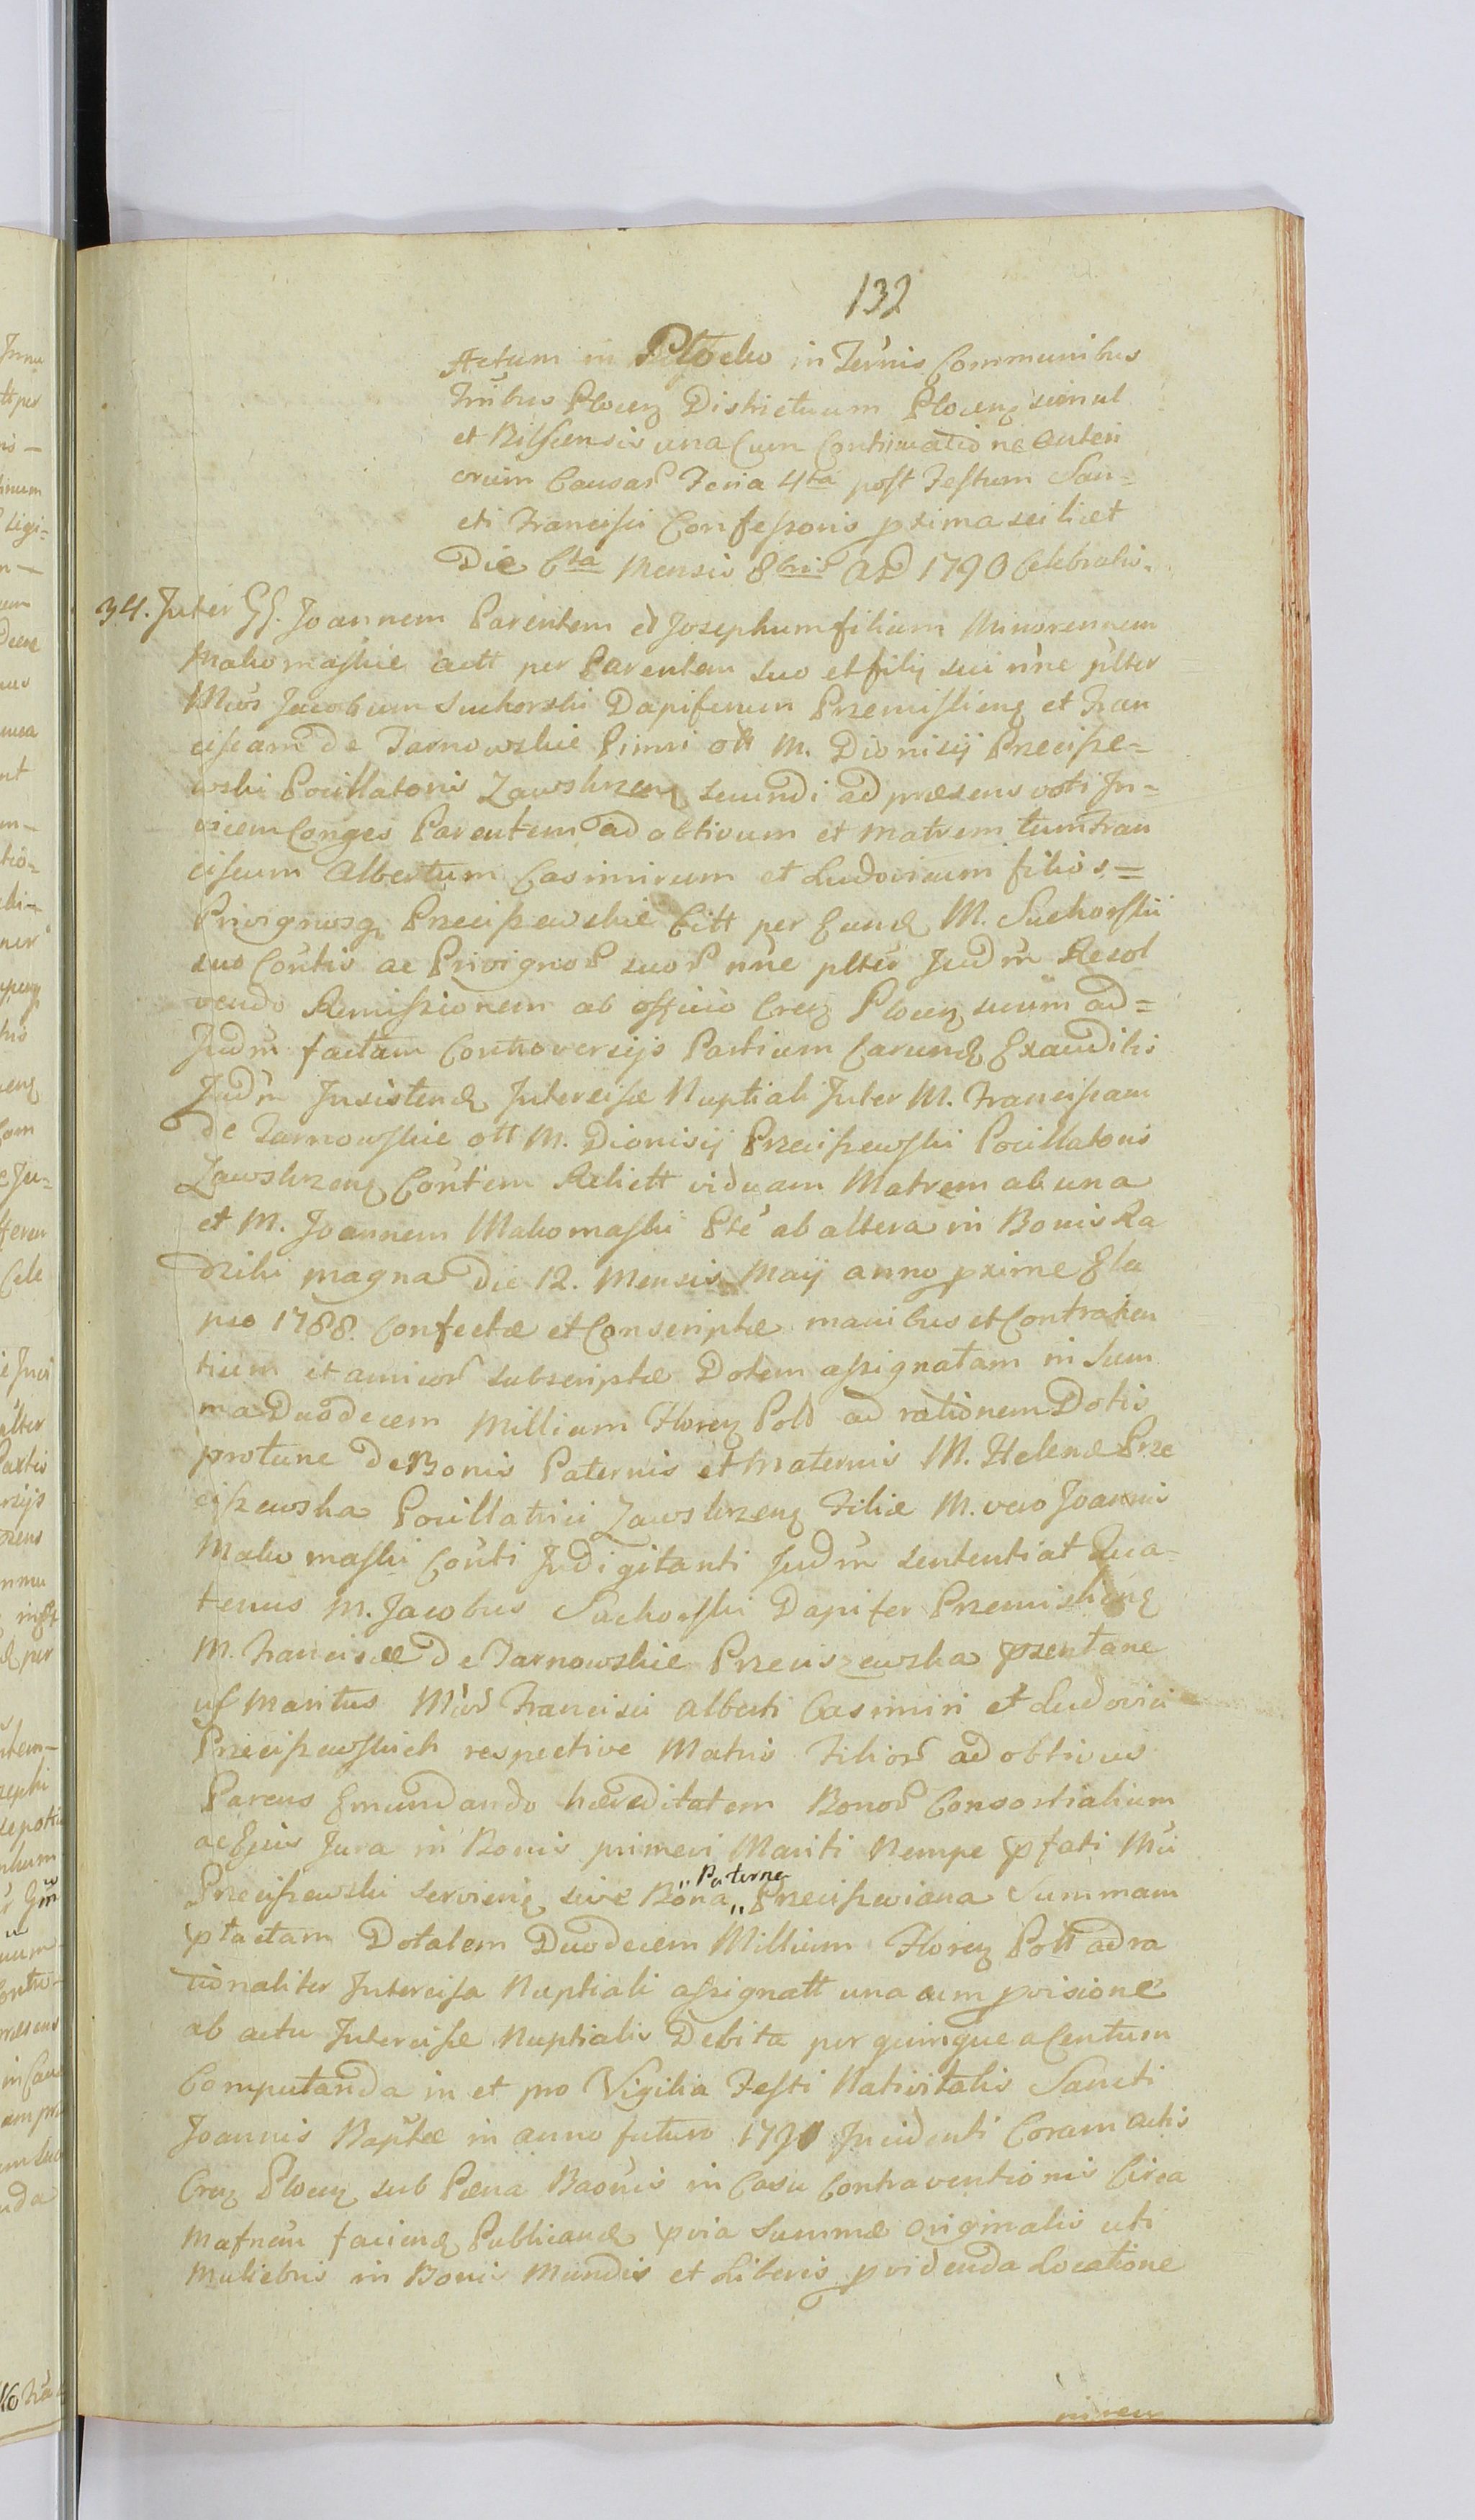 132
Actum in Plocko in Ternis Communibus
Tribus Plocen Districtuum Plocen simul
et Bilscensis una Cum Continuatione Anteri
orum Causar Feria 4ta post Festum San=
cti Francisci Confessoris proxima scilicet
Die 6ta Mensis 8bris AD 1790 Celebratis.
34. Inter GG. Joannem Parentem et Josephum filium Minorennem
Makomaskie actt per Parentem suo et filij sui nne plter
Mcos Jacobum Suchorski Dapiferum Premislien et Fran
ciscam de Tarnowskie Primi ott M. Dionisij Preciße=
wski Pocillatoris Zawskrzen secundi ad præsens voti In=
vicem Conges Parentem adobtivum et Matrem tum Fran
ciscum Albertum Casimirum et Ludovicum filios=
Privignosq Precißewskie Citt per Eund M. Suchorski
suo Contis ac Privignor suor nne plter Judm Resol
vendo Remissionem ab officio Cren Plocen suum ad=
Judm factam Controversijs Partium Earund Exauditis
Judm Insistend Intercisæ Nuptiali Inter M. Franciscam
de Tarnowskie ott M. Dionisij Precißewski Pocillatoris
Zawskrzen Contem Relictt viduam Matrem ab una
et M. Joannem Makomaski Pte ab altera in Bonis Ra
dziki magna die 12. Mensis Maij anno proxime Ela
pso 1788. Confectæ et Conscriptæ manibus et Contrahen
tium et amicor subscriptæ Dotem assignatam in Sum
ma Duodecem Millium Floren Pold ad rationem Dotis
protunc de Bonis Paternis et Maternis M. Helenæ Pre
cißewska Pocillatrici Zawskrzen Filiæ M. vero Joannis
Makomaski Conti Indigitanti Judm sententiat Qua-
tenus M. Jacobus Suchorski Dapifer Premislien
M. Franciscæ de Tarnowskie Preciszewska prsentane
uf Maritus Mcor Francisci Alberti Casimiri et Ludovici
Precißewskich respective Matris Filior adobtivus
Parens Emundando hæreditatem Bonor Consortialium
ac Ejus Jura in Bonis primevi Mariti Nempe pfati Mci
Precißewski servien sive Bona „Paterna„ Precißeviana Summam
ptactam Dotalem Duodecem Millium Floren Pott adra
tionaliter Intercisa Nuptiali assignatt una cum provisione
ab actu Intercisæ Nuptialis Debita per quinque a Centum
Computanda in et pro Vigilia Festi Nativitatis Sancti
Joannis Baptæ in anno futuro 1791 Incidenti Coram Actis
Cren Plocen sub Pæna Baonis in Casu Contraventionis Circa
Mafneu faciend Publicand pvia Summæ Originalis uti
Muliebris in Bonis Mundis et Liberis providenda Locatione